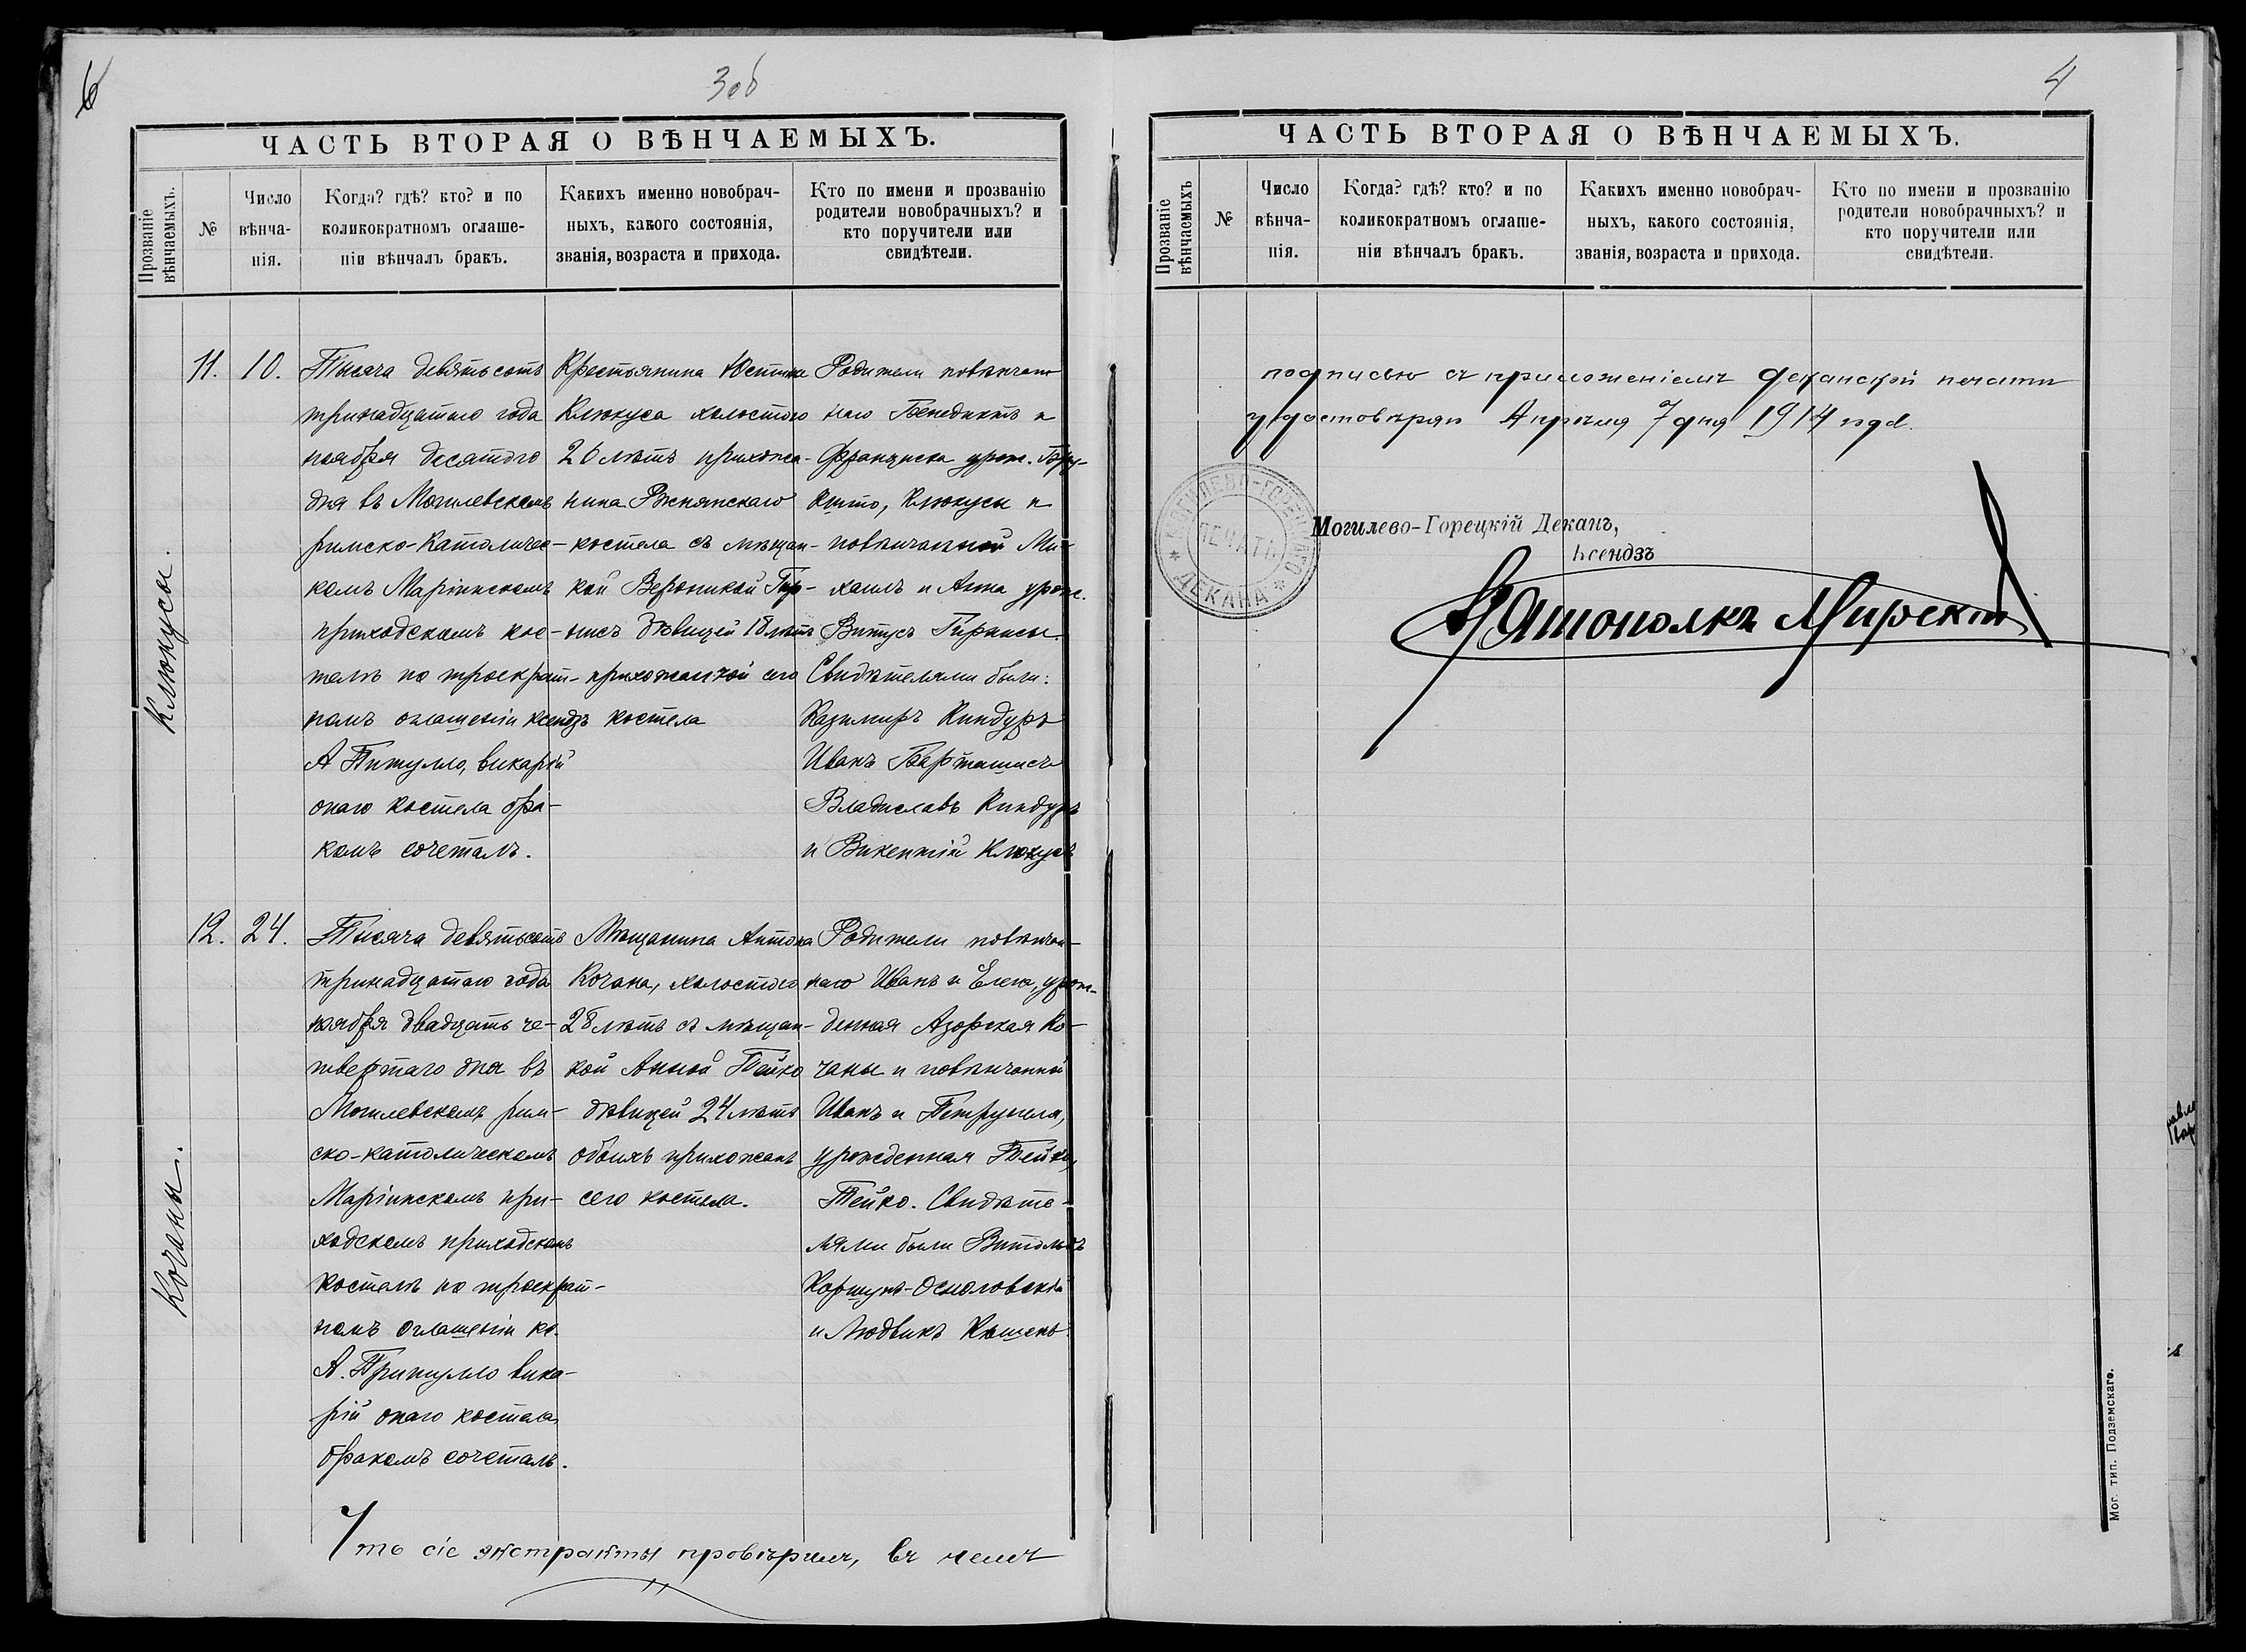 6
3об
ЧАСТЬ ВТОРАЯ О ВѢНЧАЕМЫХЪ.
Прозваніе вѣнчаемыхъ.
№
Число вѣнча-нія.
Когда? гдѣ? кто? и по
коликократномъ оглаше-
ніи вѣнчалъ бракъ.
Какихъ именно новобрач-
ныхъ, какого состоянія,
званія, возраста и прихода.
Кто по имени и прозванію
родители новобрачныхъ? и
кто поручители или
свидѣтели.
Клюкусы.
11.
10.
Тысяча девятьсотъ
тринадцатаго года
ноября десятаго
дня въ Могилевскомъ
римско-католичес-
комъ Маріинскомъ
приходскомъ кос-
телѣ по троекрат-
номъ оглашеніи ксендзъ
А викарій
онаго костела бра-
комъ сочеталъ.
Крестьянина Юстина
Клюкуса холостого
26 лѣтъ прихожа-
нина Рженянскаго
костела съ мѣщан-
кой Вероникой Гир-
нисъ дѣвицей 18 лѣтъ
прихожанкой сего
костела
Родители повѣнчан
наго Бенедиктъ и
Франциска урож.
Клюкусы и
повѣнчанной Ми-
хаилъ и Анна урож.
Витусъ
Свидѣтелями были:
Казимиръ Киндуръ
Иванъ Барташисъ
Владиславъ Киндуръ
и Викентій Клюкусъ
Кочаны.
12.
24.
Тысяча девятьсотъ
тринадцатаго года
ноября двадцать че-
твертаго дня въ
Могилевскомъ рим-
ско-католическомъ
Маріинскомъ при-
ходскомъ приходскомъ
костелѣ по троекрат-
номъ оглашеніи кс.
А. вика-
рій онаго костела
бракомъ сочеталъ.
Мѣщанина Антона
Кочана, холостого
28 лѣтъ съ мѣщан-
кой Анной Тейко
дѣвицей 24 лѣтъ
обоихъ прихожанъ
сего костела.
Родители повѣнчан-
наго Иванъ и Елена, урож-
денная Азорская Ко-
чаны и повѣнчанной
Иванъ и Петрунеля,
урожденная Тейко,
Тейко. Свидѣте-
лями были Витольдъ
Коршунъ-Осмоловскій
и Людвикъ
Что сіе экстракты провѣрилъ, въ чемъ
4
ЧАСТЬ ВТОРАЯ О ВѢНЧАЕМЫХЪ.
Прозваніе вѣнчаемыхъ
№
Число вѣнча-нія.
Когда? гдѣ? кто? и по
коликократномъ оглаше-
ніи вѣнчалъ бракъ.
Какихъ именно новобрач-
ныхъ, какого состоянія,
званія, возраста и прихода.
Кто по имени и прозванію
родители новобрачныхъ? и
кто поручители или
свидѣтели.
подписью съ приложеніемъ деканской печати
удостовѣряю Апрѣля 7 дня 1914 года.
МОГИЛЕВО-ГОРЕЦКАГО ДЕКАНА
ПЕЧАТЬ
Могилево-Горецкій Деканъ,
Ксендзъ
Святополкъ Мирскій
Мог. тип. Подземскаго.